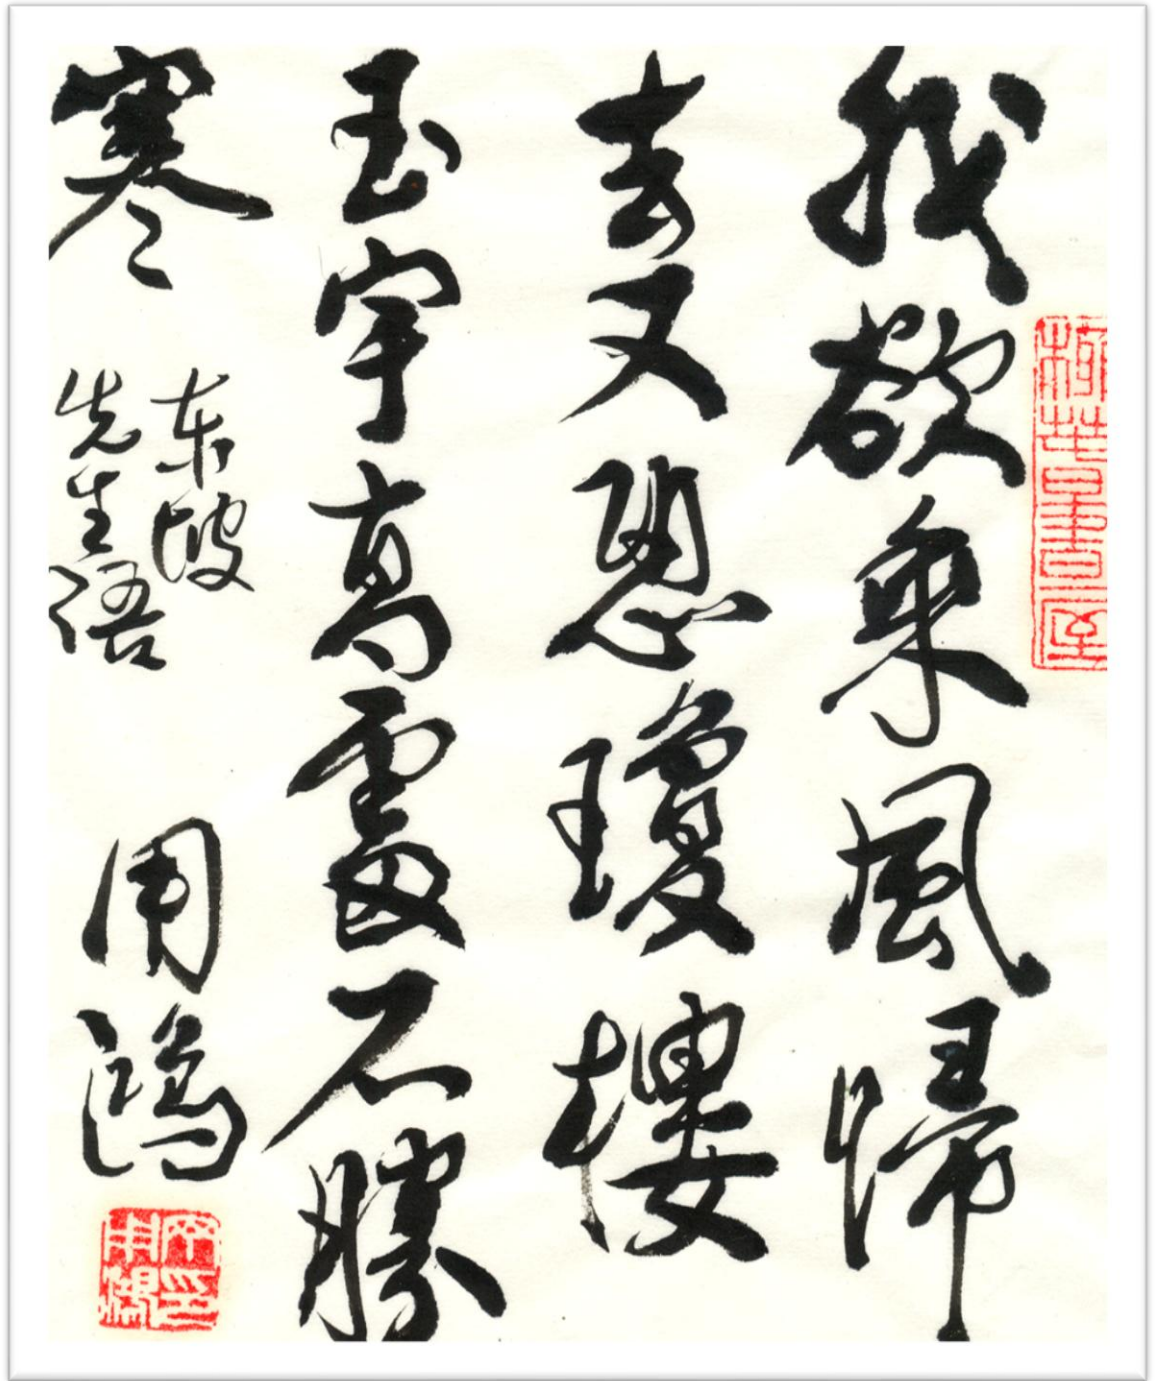 我欲乘風歸
去又恐瓊樓
玉宇高處不勝
寒
东坡
先生语
用鴻